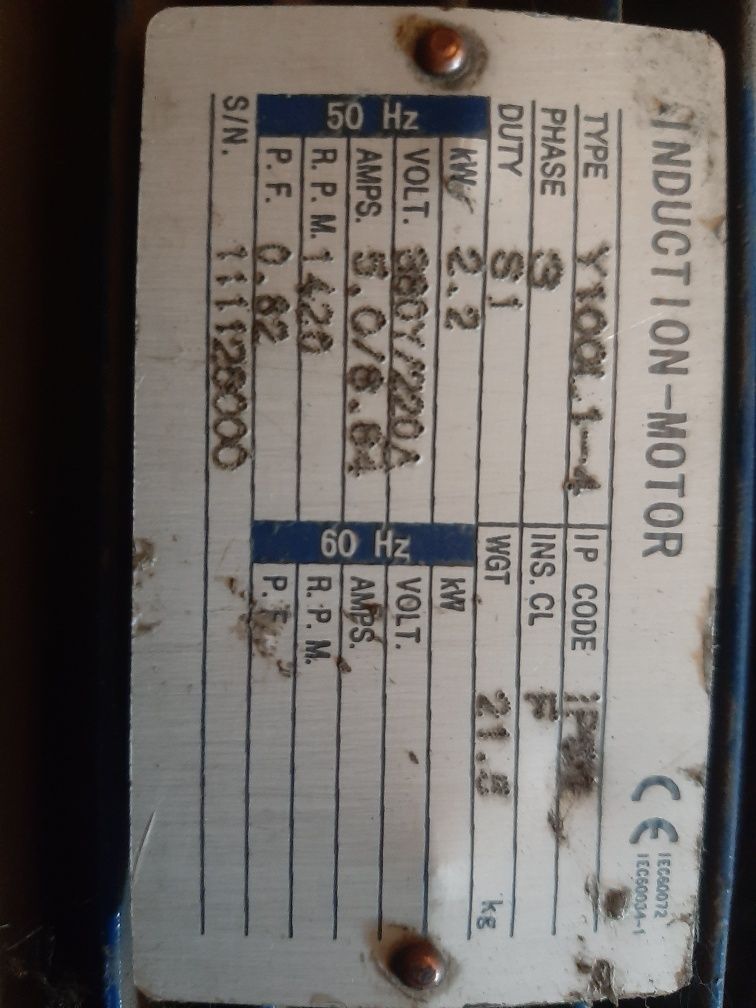 INDUCTION-MOTOR CE IEC60072
IEC60034-1
TYPE Y100L1-4 IP CODE
PHASE 3 INS.CL F
DUTY S1 WGT 21.5 kg
50 Hz 60 Hz
kW 2.2 kW
VOLT. 380Y/220Δ VOLT.
AMPS. 5.0/8.64 AMPS.
R.P.M. 1420 R.P.M.
P.F. 0.82 P.F.
S/N.